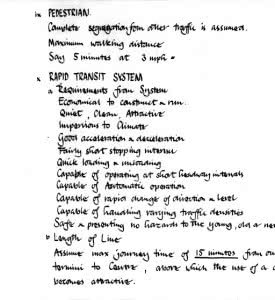 ix PEDESTRIAN.
Complete segregation from other traffic is assumed.
Maximum walking distance
Say 5 minutes at 3 mph =
x RAPID TRANSIT SYSTEM
a Requirements from System
Economical to construct & run.
Quiet, Clean, Attractive
Impervious to Climate
Good acceleration & deceleration
Fairly short stopping interval
Quick loading & unloading
Capable of operating at short headway intervals
Capable of Automatic operation
Capable of rapid change of direction & level
Capable of handling varying traffic densities
Safe & presenting no hazards to the young, old or
b Length of Line
Assume max journey time of 15 minutes from
termini to Centre, above which the use of a
becomes attractive.